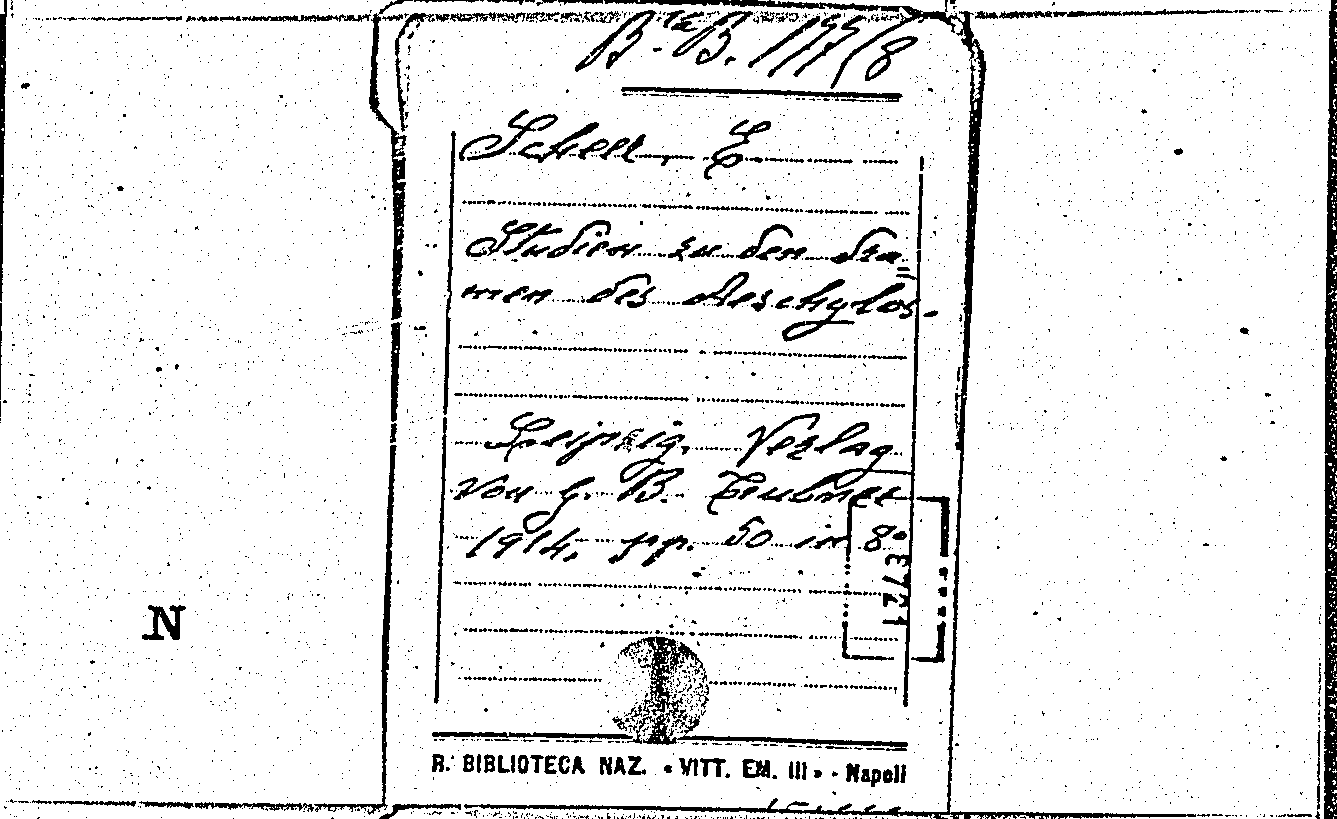 B.ca B. 1775 (8
Scheer, E
Studien zu den Dra=
men des Aeschylos.
Leipzig, Verlag
von G. B. Teubner
1914, pp. 50 in 8°
E721
N
R. BIBLIOTECA NAZ. « VITT. EM. III » - Napoli